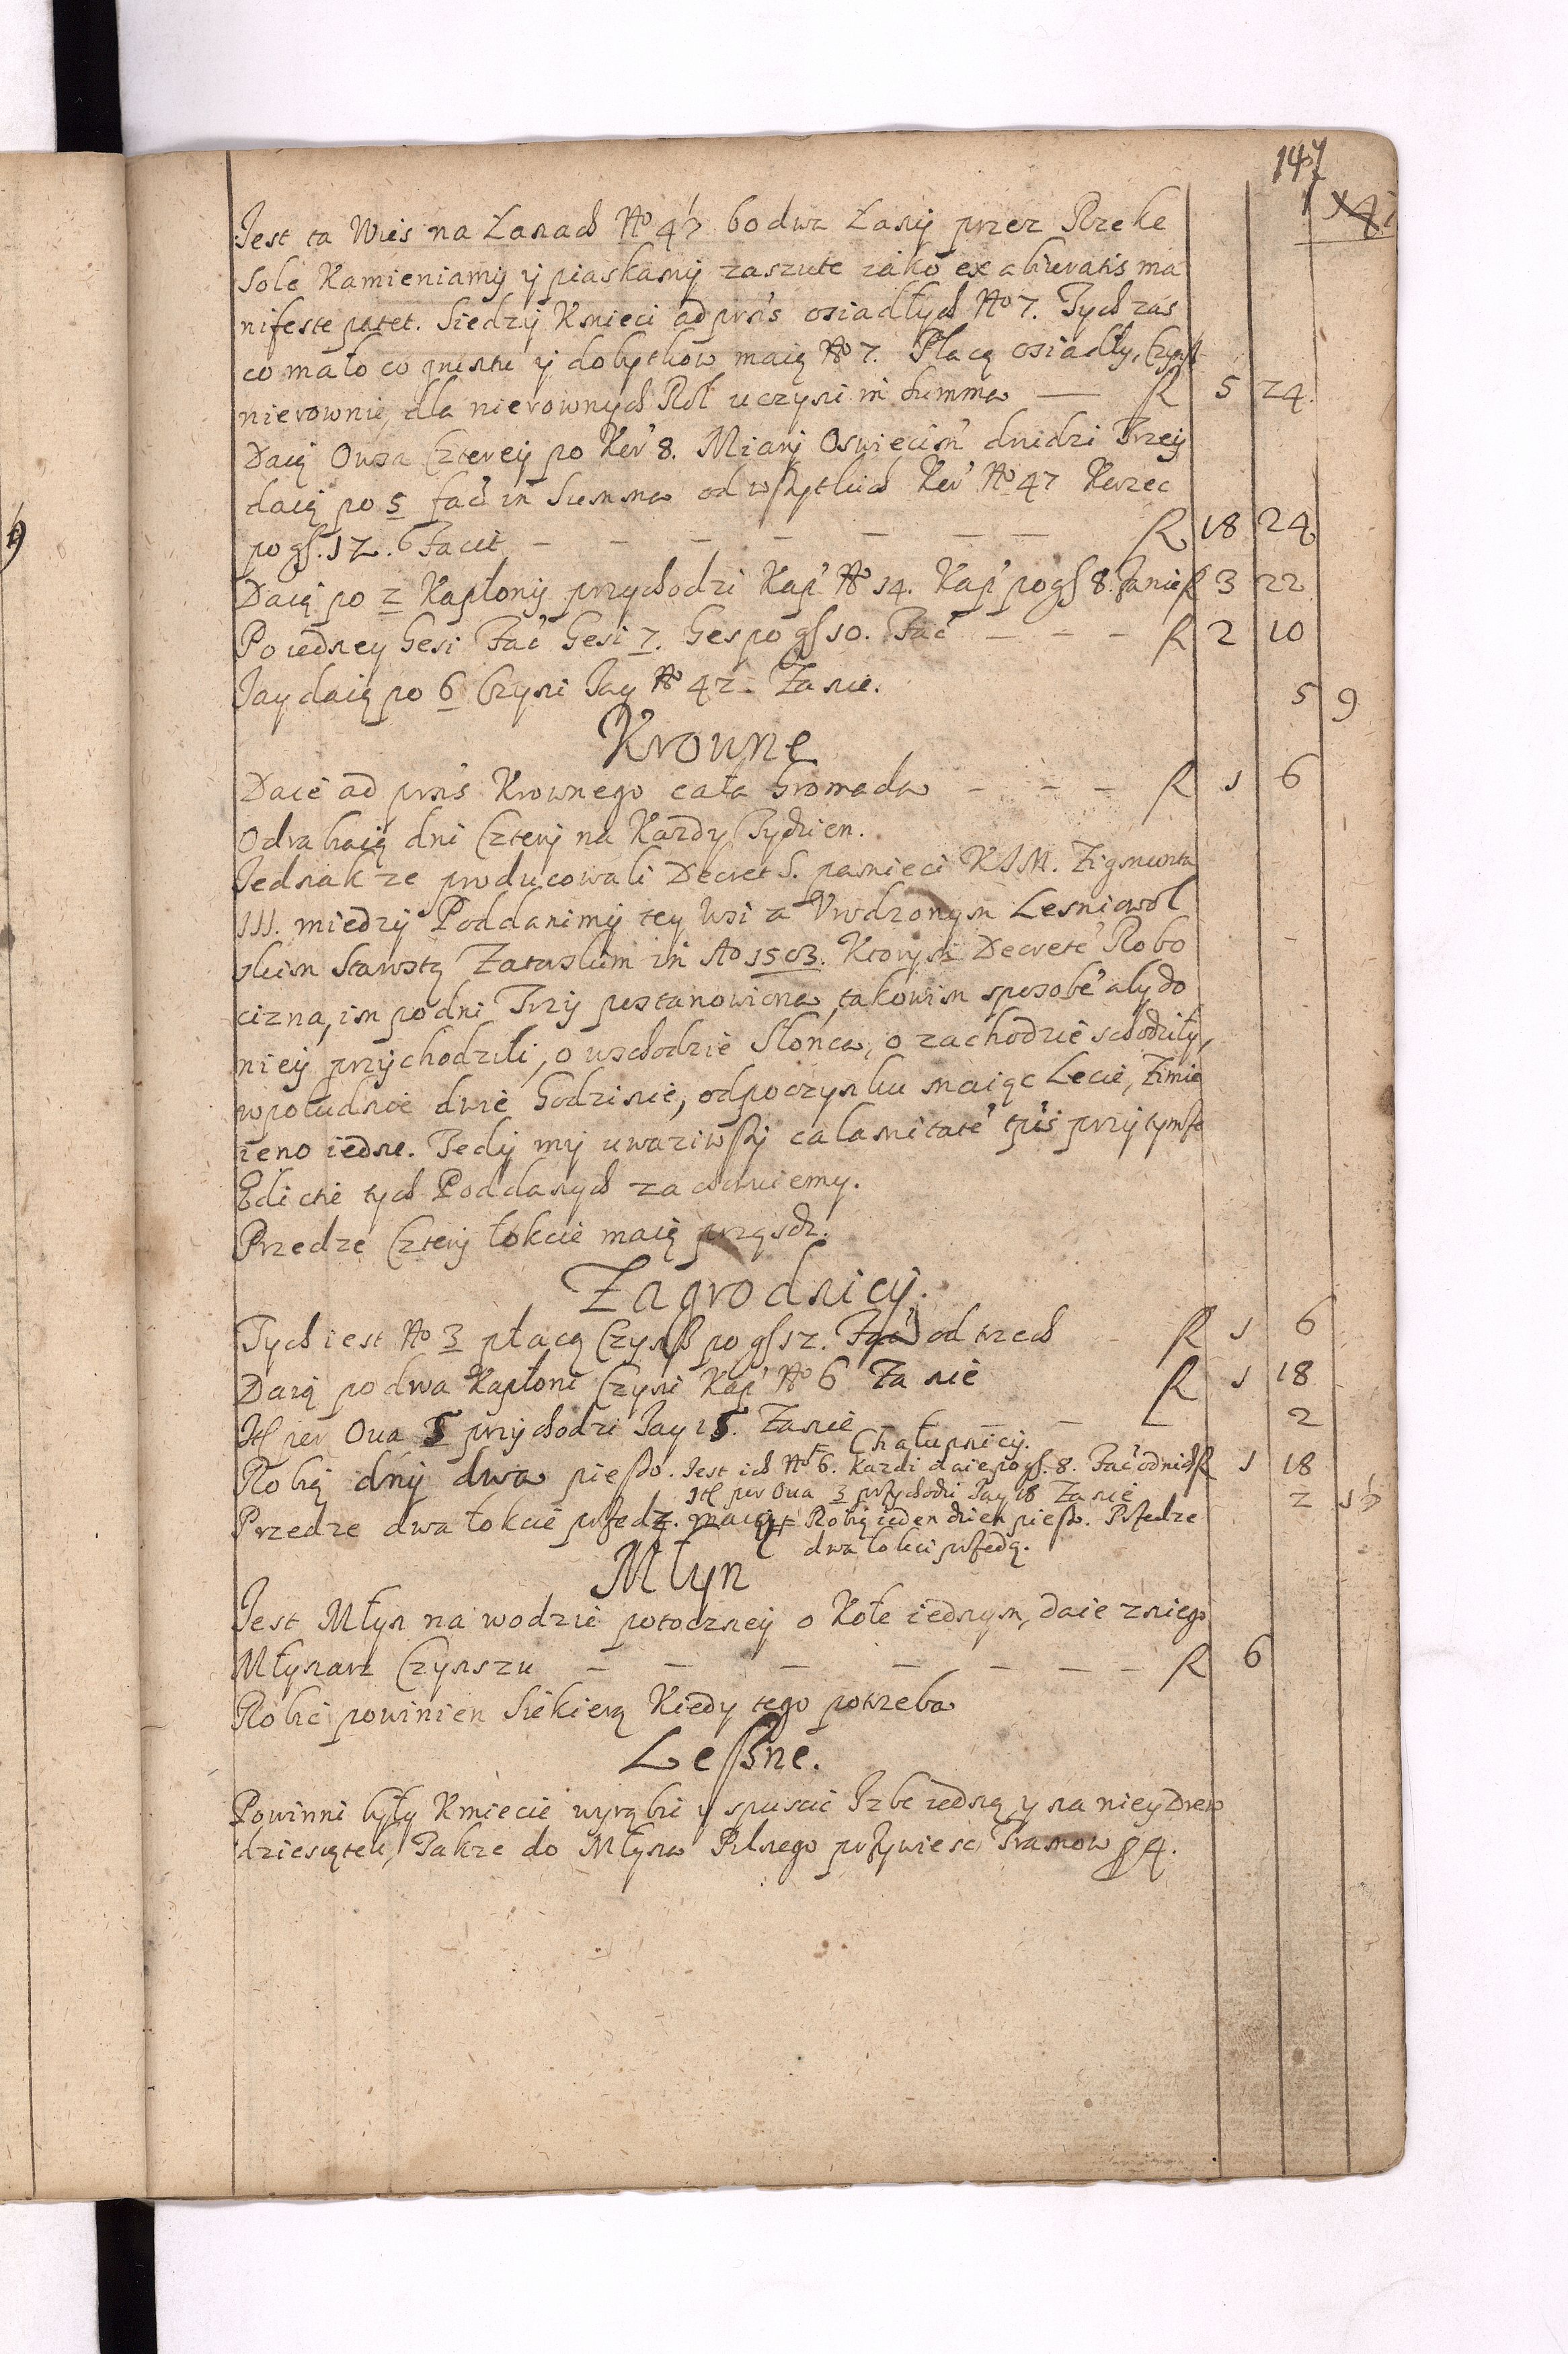 147
Jest ta Wies na Łanach No 4½ bo dwa Łany przez Rzeke
Sole Kamieniamy y piaskamy zaszute iako ex abiuratis ma
nifeste patet. Siedzy Kmieci ad prns osiadłych No 7. Tych zas
co mało co gruntu y dobytkow maią No 7. Płacą osiadły, Czynß
nierownie, dla nierownych Rol uczyni in summa — R 5 24.
Daią Owsa Czterey po Kor' 8. Miary Oswiecim' drudzi Trzey
daią po 5 fac' in Summa od wszytkich Kor' No 47 Korzec
po gß. 12. Facit — — — — — — R 18 24
Daią po 2 Kapłony przychodzi Kap' No 14. Kap' po gß 8. Za nie R 3 22
Po iedney Gesi Fac' Gesi 7. Ges po gß 10. Fac' — — — R 2 10
Jay daią po 6 Czyni Jay No 42. Za nie. 5 9
Krowne
Daie ad prns Krownego cała Gromada — — — R 1 6
Odrabiaią dni Cztery na Kazdy Tydzien.
Jednak ze producowali Decret S. pamieci KJM. Zigmunta
III. miedzy Poddanimy tey Wsi a Vrodzonym Lesniowol
skim Starostą Zatorskim in Ao 1503. Ktorym Decrete' Robo
cizna, im po dni Trzy postanowiona, takowim sposobe' aby do
niey przychodzili, o wschodzie Słonca, o zachodzie schodzily,
w poludnie dwie Godzinie, odpoczynku maiąc Lecie, Zimie
ieno iedne. Tedy my uwaziwszy calamitate' tpis przy tymße
Edictie tych Poddanych zachowuiemy.
Przedze Cztery łokcie maią prządz.
Zagrodnicy.
Tych iest No 3 płacą Czynß po gß 12. Fac' od trzech — R 1 6
Daią po dwa Kapłoni Czyni Kap' No 6 Za nie R 1 18
Itß per Oua 5 przychodzi Jay 15. Za nie — — — 2
Chałupnicy.
Robią dny dwa pießo. Jest ich No 6. Kazdi daie po gß. 8. Fac' od nich R 1 18
Itß per Oua 3 przychodzi Jay 18 Za nie 2 1½
Przedze dwa łokcie przedz. maią Robią ieden dzien pießo. Przedze
dwa łokci przedą.
Młyn
Jest Młyn na wodzie potoczney o Kole iednym, daie z niego
Młynarz Czynszu — — — — — — — R 6
Robic powinien Siekierą Kiedy tego potrzeba
Leßne.
Powinni były Kmiecie wyrąbic y spuscic Izbe iedną y na niey Drew
dziesiątek, Takze do Młyna Pilnego przywiesc Tramow 4.